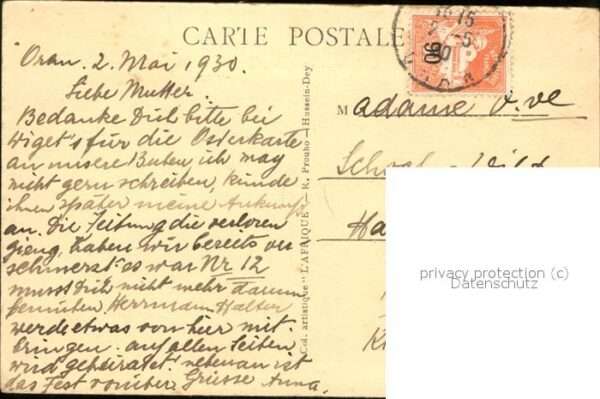 CARTE POSTALE
Oran. 2. Mai 1930.
Liebe Mutter.
Bedanke Dich bitte bei
Wiget's für die Osterkarte
an unsere Buben, ich mag
nicht gern schreiben, künde
ihnen später meine Ankunft
an. Die Zeitung die verloren
gieng, haben wir bereits ver
schmerzt. es war Nr 12
musst Dich nicht mehr darum
bemühen. Herrmann Halter
werde etwas von hier mit-
bringen. auf allen Seiten
wird geheiratet. nebenan ist
das Fest vorüber. Grüsse Anna.
Col. artistique "L'AFRIQUE" - R. Prouho - Hussein-Dey
Madame Vve
Ha
privacy protection (c)
Datenschutz